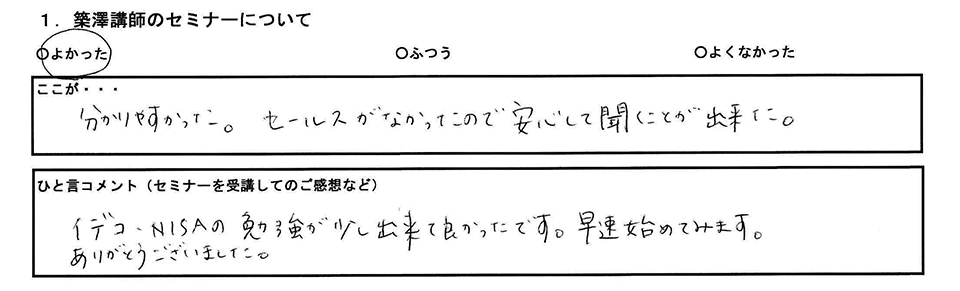 1．築澤講師のセミナーについて
○よかった ○ふつう ○よくなかった
ここが・・・
分かりやすかった。 セールスがなかったので安心して聞くことが出来た。
ひと言コメント（セミナーを受講してのご感想など）
イデコ・NISAの勉強が少し出来て良かったです。早速始めてみます。
ありがとうございました。